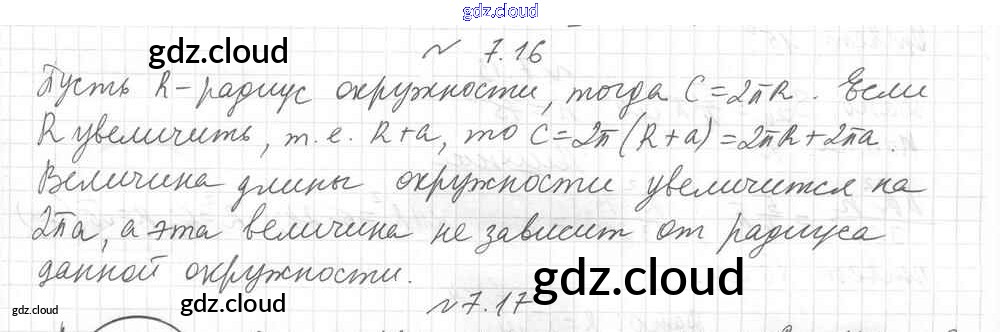 gdz.cloud
gdz.cloud
№ 7.16
Пусть R - радиус окружности, тогда C = 2πR. Если
R увеличить, т.е. R+a, то C = 2π(R+a) = 2πR + 2πa.
Величина длины окружности увеличится на
2πa, а эта величина не зависит от радиуса
данной окружности.
gdz.cloud
gdz.cloud
gdz.cloud
№ 7.17